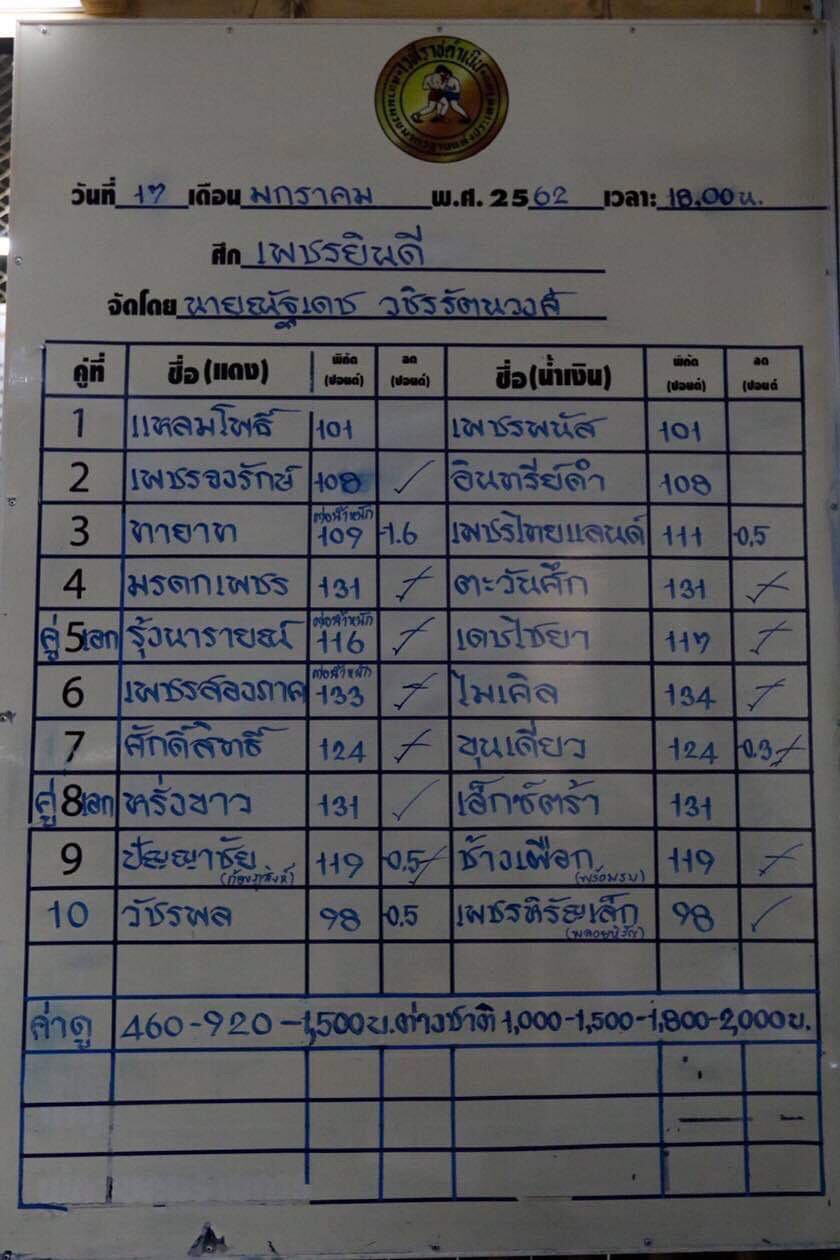 เวทีราชดำเนิน
วันที่ 17 เดือน มกราคม พ.ศ. 2562 เวลา: 18.00 น.
ศึก เพชรยินดี
จัดโดย นายณัฐเดช วชิรรัตนวงศ์
คู่ที่ ชื่อ (แดง) พิกัด (ปอนด์) ลด (ปอนด์) ชื่อ (น้ำเงิน) พิกัด (ปอนด์) ลด (ปอนด์
1 แหลมโพธิ์ 101 เพชรพนัส 101
2 เพชรจงรักษ์ 108 ✓ อินทรีย์ดำ 108
3 ทายาท ต่อน้ำหนัก 109 -1.6 เพชรไทยแลนด์ 111 -0.5
4 มรดกเพชร 131 ตะวันศึก 131
คู่ 5 เอก รุ้งนารายณ์ ต่อน้ำหนัก 116 เดชไชยา 117
6 เพชรสองภาค ต่อน้ำหนัก 133 ไมเคิล 134
7 ศักดิ์สิทธิ์ 124 ขุนเดี่ยว 124 -0.3
คู่ 8 เอก หรั่งขาว 131 ✓ เอ็กซ์ตร้า 131
9 ปัญญาชัย (ก้องภูสิงห์) 119 -0.5 ช้างเผือก (พร้อมรบ) 119
10 วัชรพล 98 -0.5 เพชรหิรัญเล็ก 98 ✓
ค่าดู 460-920-1,500 บ. ต่างชาติ 1,000-1,500-1,800-2,000 บ.